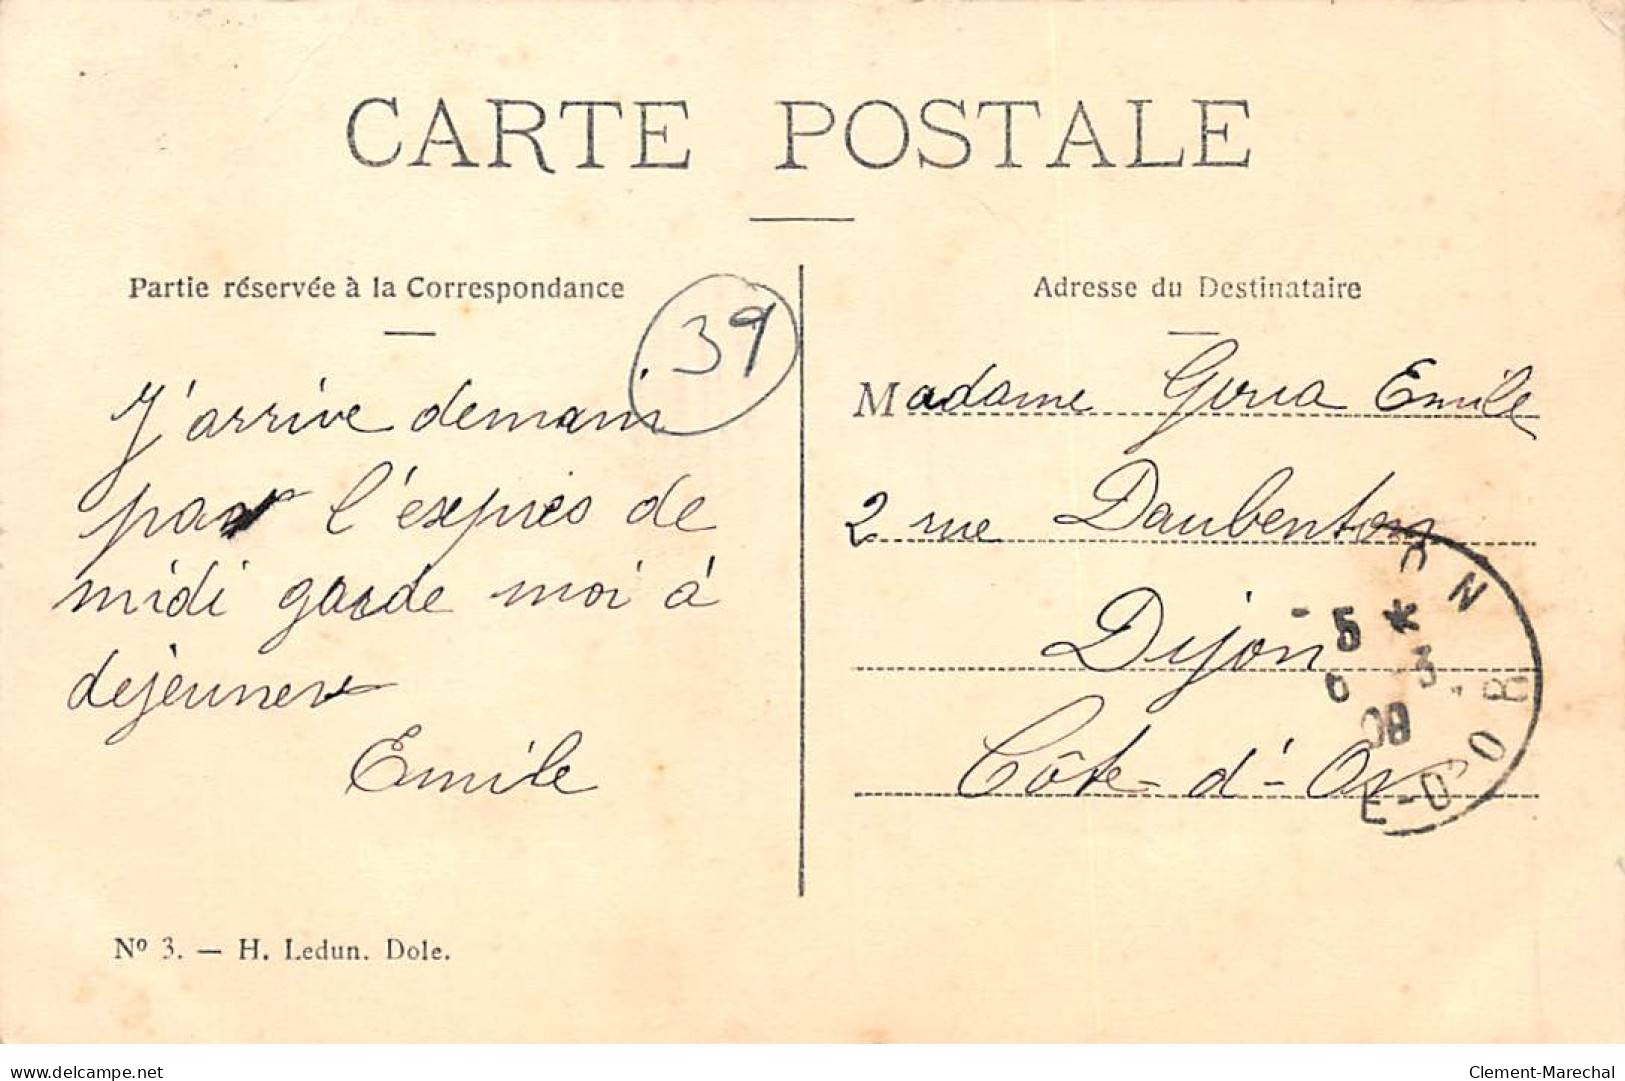 CARTE POSTALE
Partie réservée à la Correspondance
39
J'arrive demain
par l'exprès de
midi garde moi à
dejeuner
Emile
Nº 3. — H. Ledun. Dole.
Adresse du Destinataire
Madame Emile
2 rue Daubenton
Dijon
Côte-d'-Or
ON
5 *
6 3
09
E-D'OR
delcampe.net
Clement-Marechal